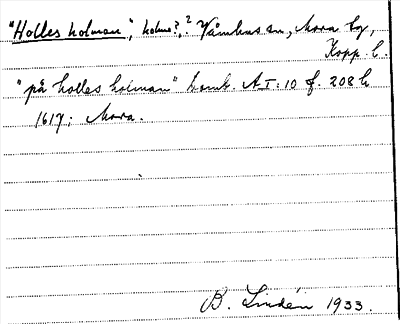 "Holles holman", holme?,? Våmhus sn, Mora tg,
Kopp. l.
"på holles holman" Domb. A I: 10 f. 202 b
1617. Mora.
B. Lindén 1933.